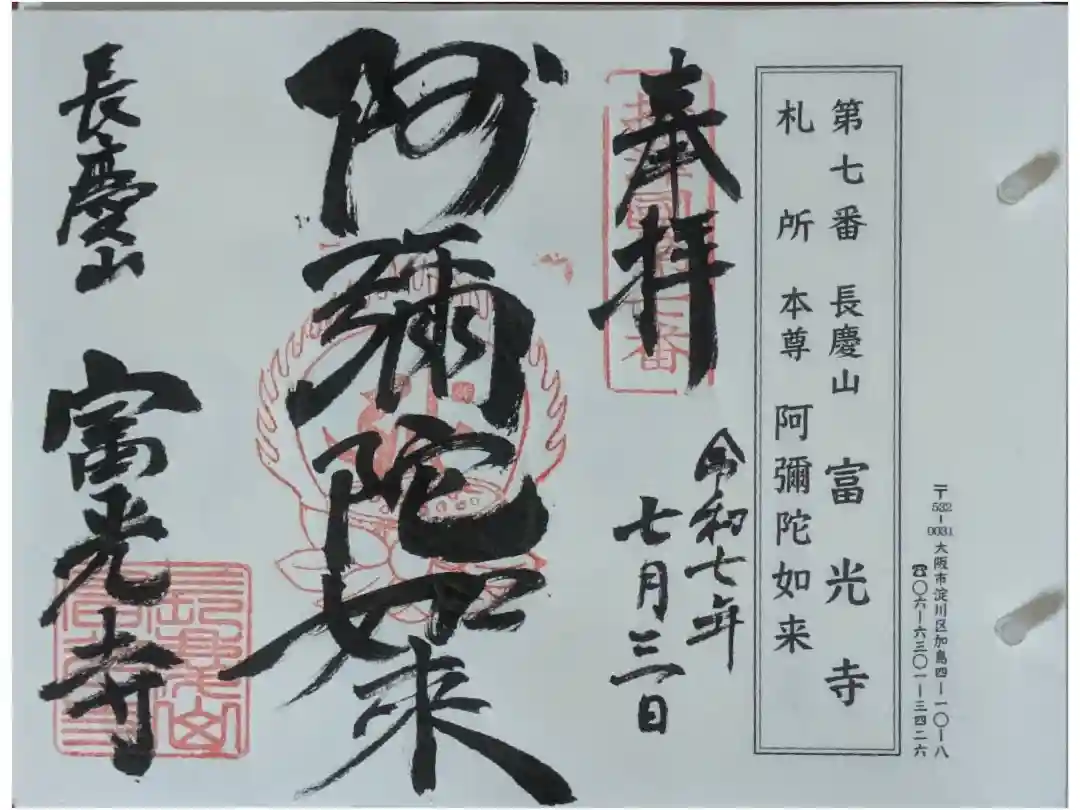 〒532-0031 大阪市淀川区加島四-一〇-八
☎〇六-六三〇一-三四二六
第七番 長慶山 富光寺
札所 本尊 阿彌陀如来
奉拝
令和七年
七月三日
阿彌陀如来
長慶山
富光寺